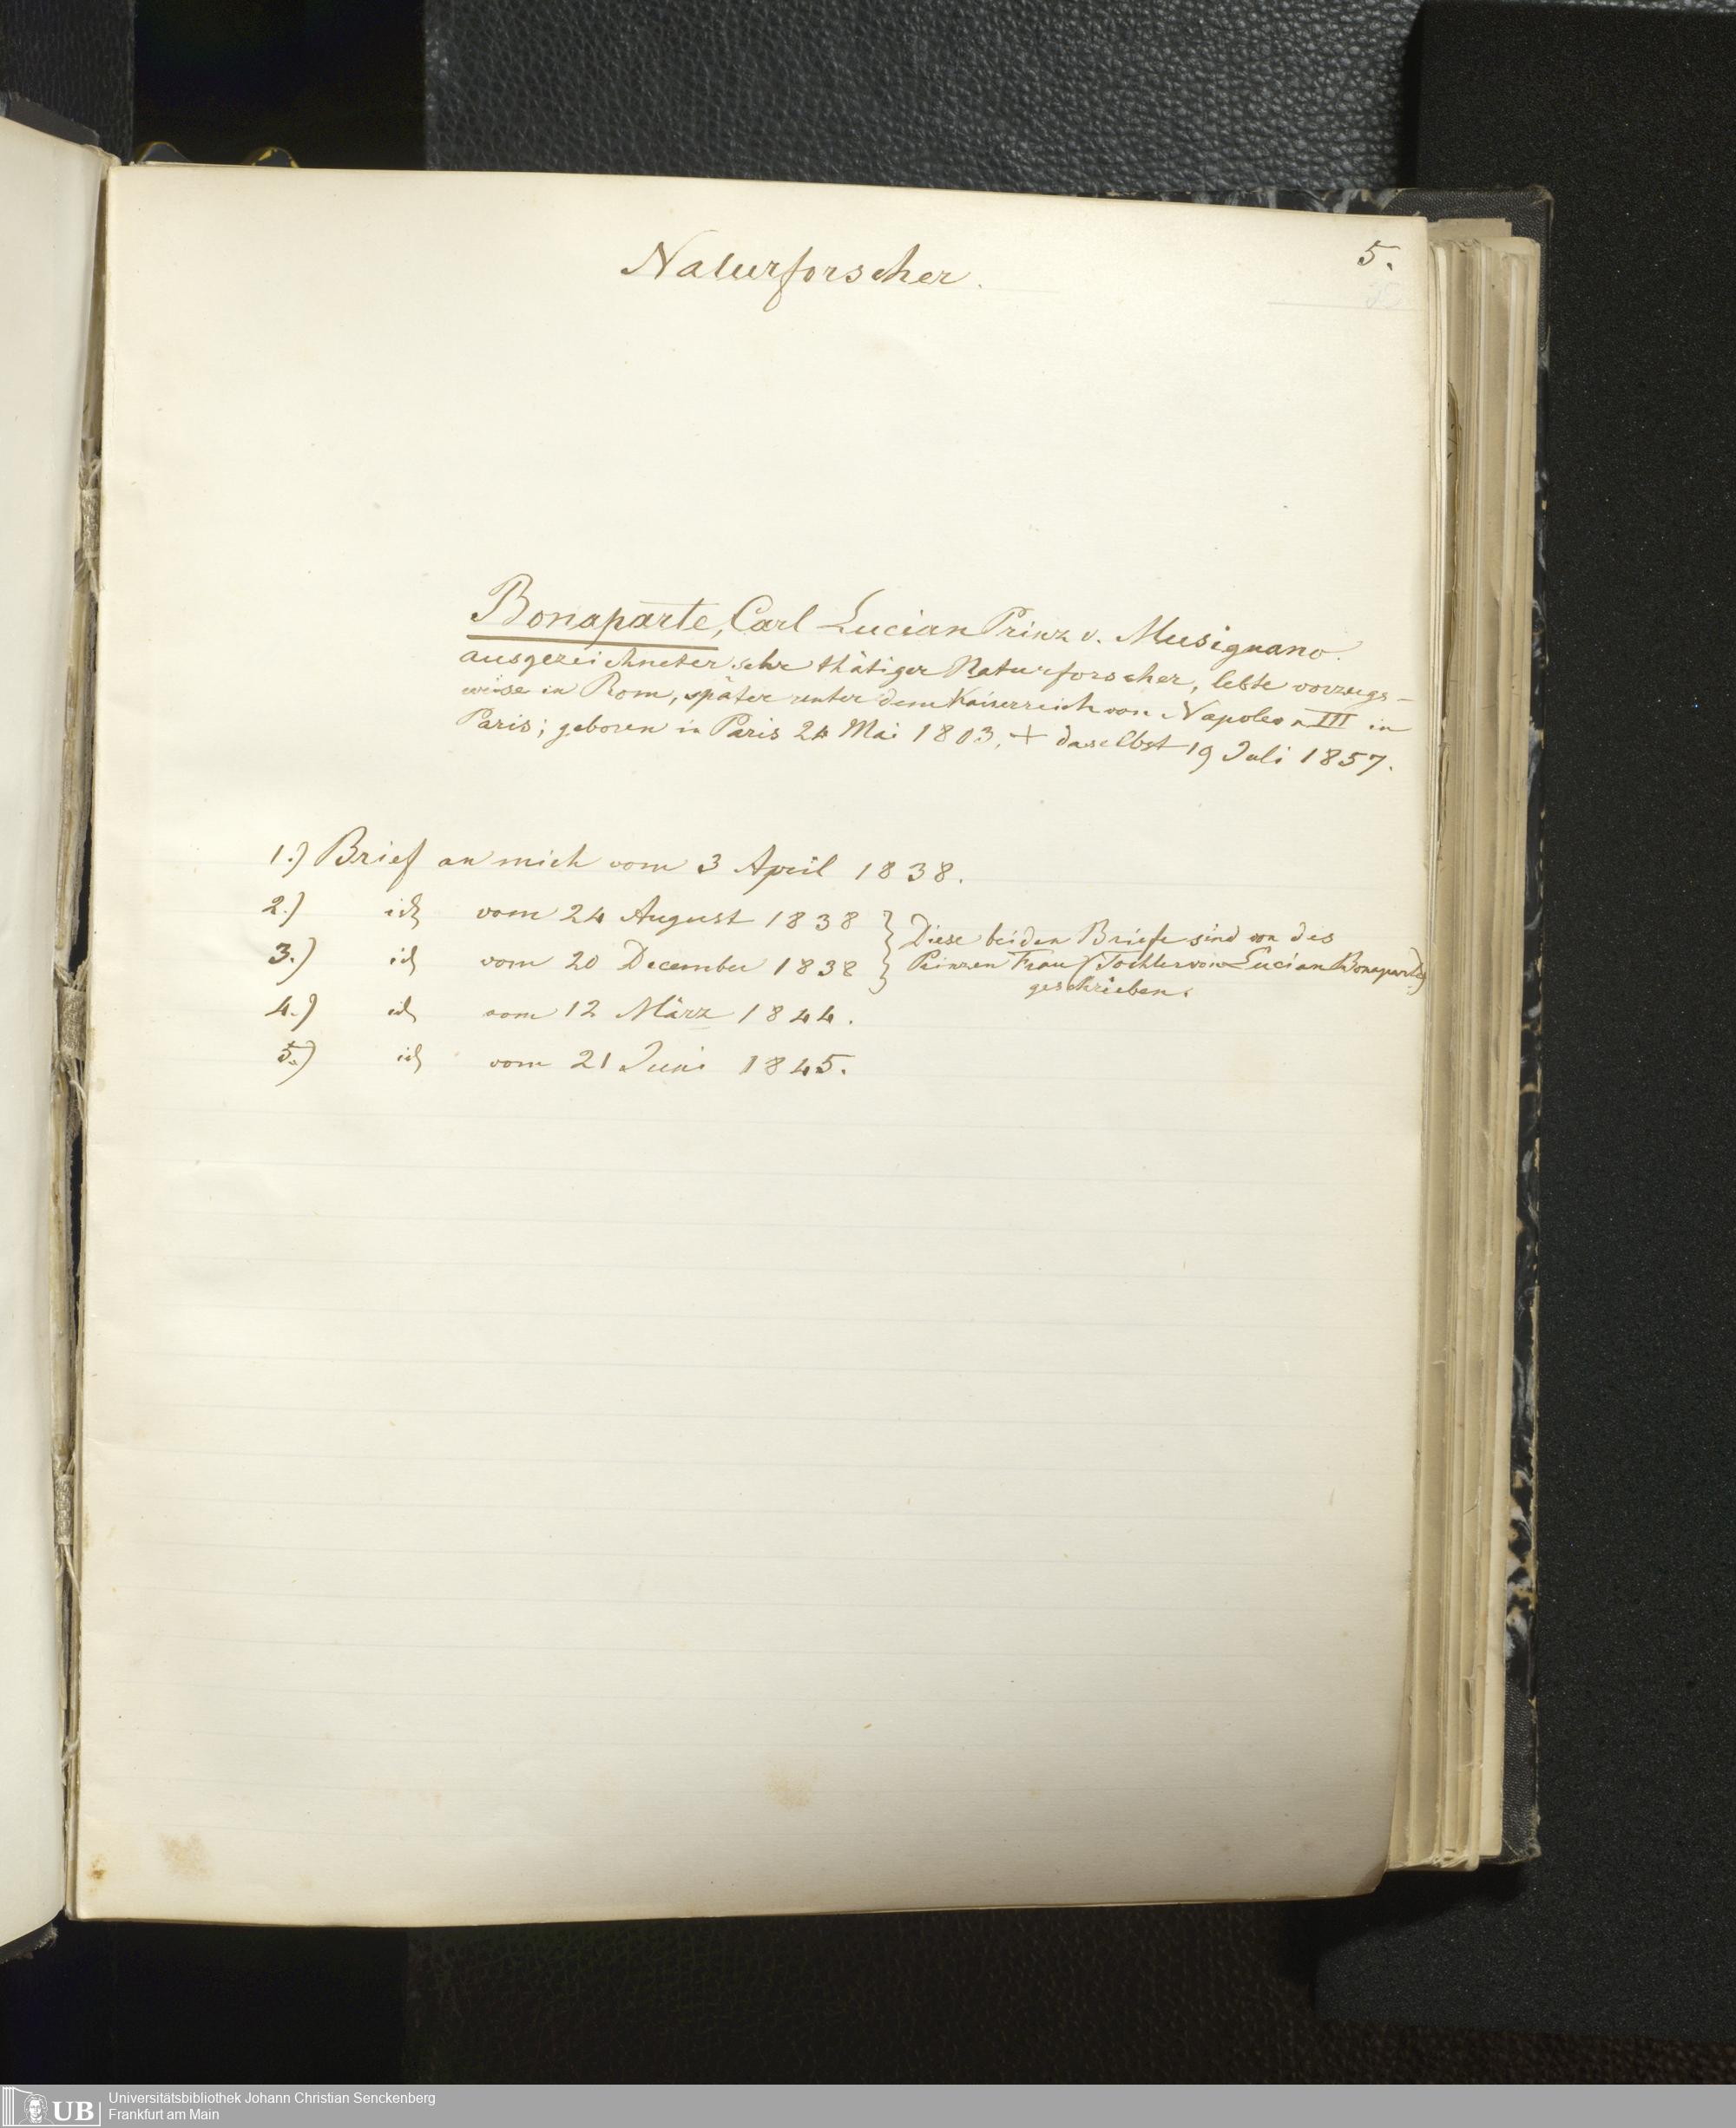 Naturforscher.
5.
Bonaparte, Carl Lucian Prinz v. Musignano.
ausgezeichneter sehr thätiger Naturforscher, lebte vorzugs-
weise in Rom, später unter dem Kaiserreich von Napoleon III in
Paris; geboren in Paris 24 Mai 1803, + daselbst 19 Juli 1857.
1.) Brief an mich vom 3 April 1838.
2.) id vom 24 August 1838
3.) id vom 20 December 1838
Diese beiden Briefe sind von des
Prinzen Frau (Tochter von Lucian Bonaparte)
geschrieben.
4.) id vom 12 März 1844.
5.) id vom 21 Juni 1845.
UB
Universitätsbibliothek Johann Christian Senckenberg
Frankfurt am Main